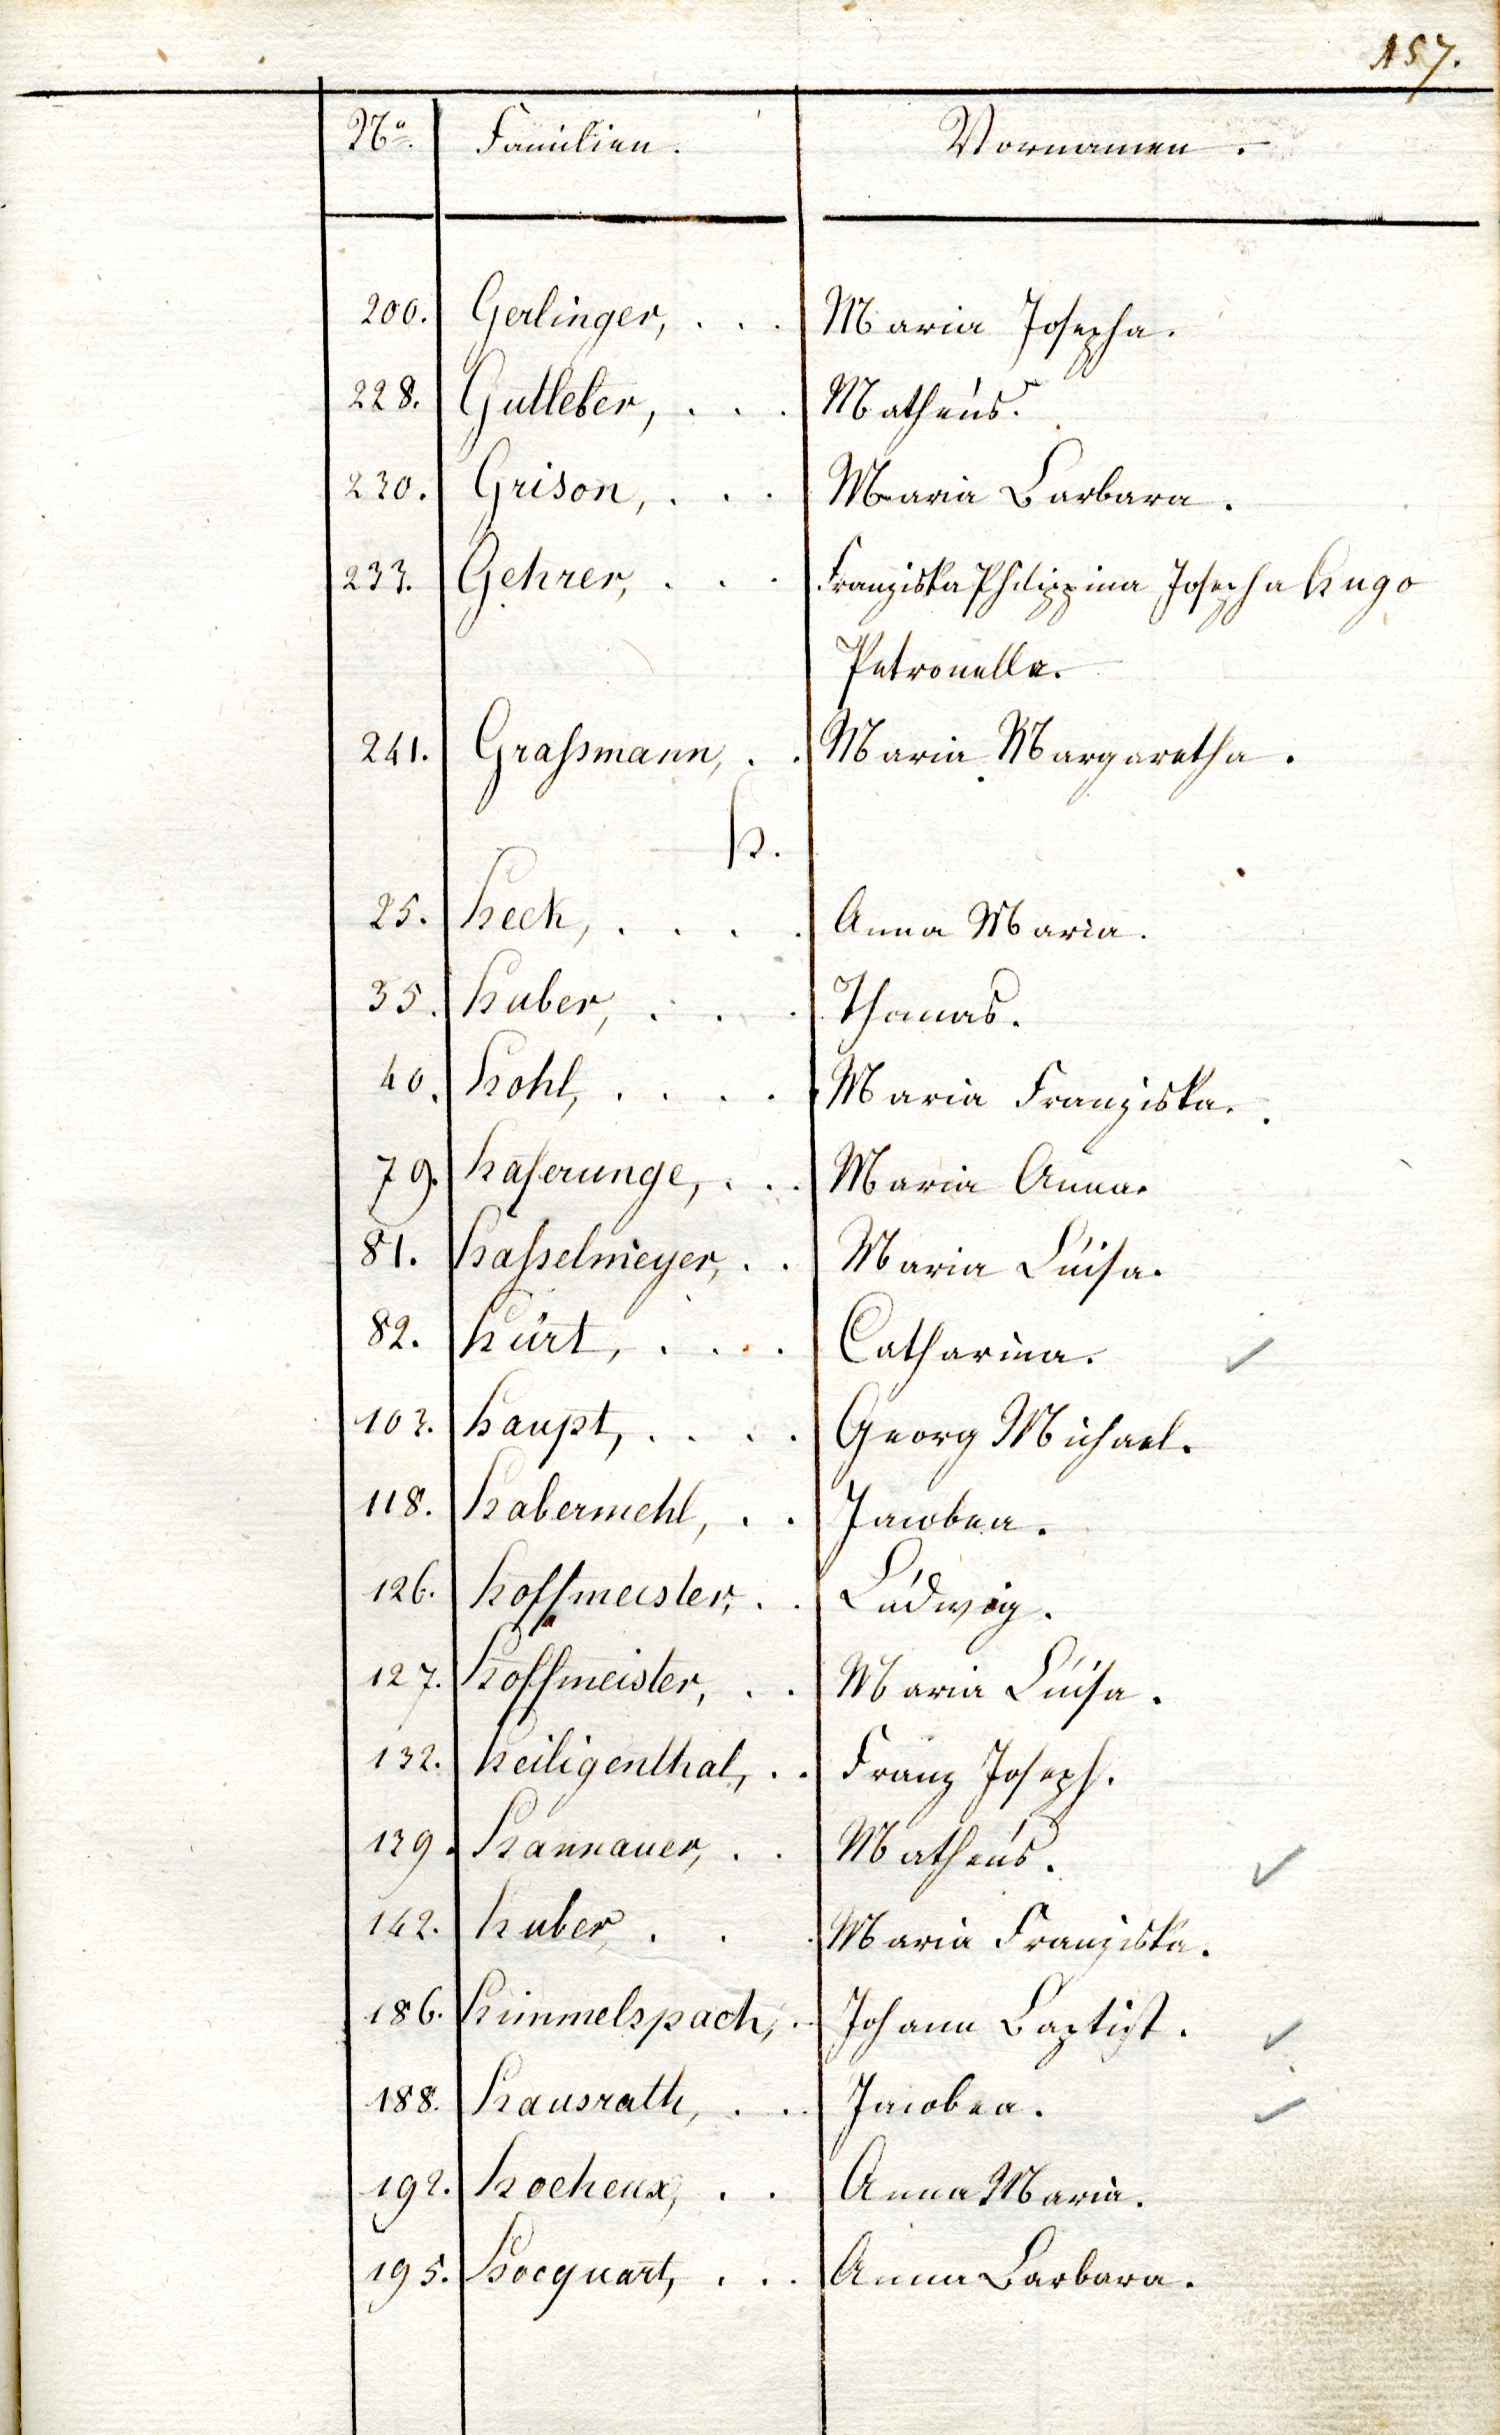 157.
No. Familien. Vornamen.
200. Gerlinger, . . . Maria Josepha.
228. Gutleber, . . . Matheus.
230. Grison, . . . Maria Barbara.
233. Gehrer, . . . Franziska Philippina Josepha Hugo
Petronella.
241. Graßmann, . . Maria Margaretha.
H.
25. Heck, . . . . Anna Maria.
35. Huber, . . . Thomas.
40. Hohl, . . . . Maria Franziska.
79. Haserunge, . . . Maria Anna.
81. Hasselmeyer, . . Maria Luisa.
82. Hürt, . . . . Catharina. ✓
103. Haupt, . . . . Georg Michael.
118. Habermehl, . . Jacobea.
126. Hoffmeister, . . Ludwig.
127. Hoffmeister, . . Maria Luisa.
132. Heiligenthal, . . Franz Joseph.
139. Hannauer, . . Matheus. ✓
142. Huber, . . . Maria Franziska.
186. Himmelspach, . Johann Baptist. ✓
188. Hausrath, . . . Jacobea. ✓
192. Hocheux, . . Anna Maria.
195. Hocquart, . . . Anna Barbara.